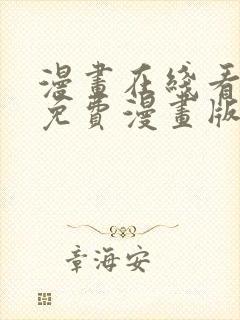 漫畫在綫看
免費漫畫版
章海安